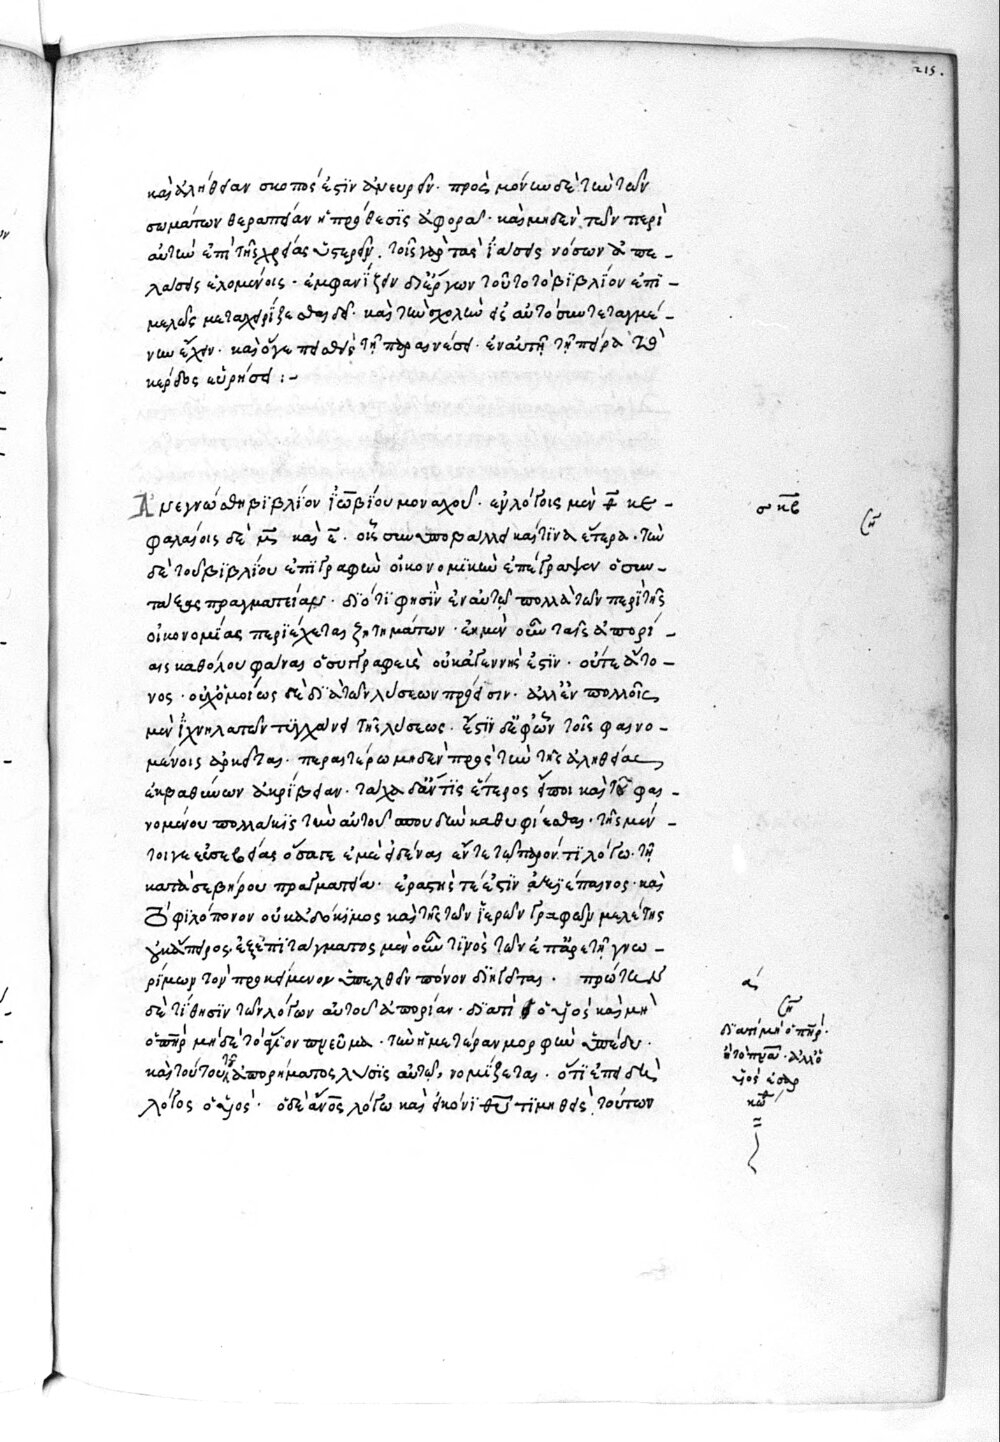 215.
καὶ ἀλήθειαν σκοπός ἐστϊν ἀνευρεῖν· πρὸς μόνων δὲ τὴν τῶν
σωμάτων θεραπείαν ἡ πρόθεσϊς ἀφορᾶ· καὶ μηδὲν τῶν περὶ
αὐτὴν ἐπὶ τῆς χρείας ὑστερεῖν. τοῖς γὰρ τὰς ἰάσεις νόσων ἀπε-
λάσεις ἑλομένοις· ἐμφανίζειν δι' ἔργων τοῦτο τὸ βϊβλΐον ἐπϊ-
μελῶς μεταχειρΐζεσθαι δεῖ· καὶ τὴν σχολὴν εἰς αὐτὸ συντεταγμέ-
νην ἔχειν· καὶ ὅγε πεισθεὶς τῆ παραινέσει· ἐν αὐτῆ τῆ πείρα τὸ
κέρδος εὑρήσει :-
Ἀνεγνώσθη βϊβλΐον ἰὼβΐου μοναχοῦ· ἐν λόγοις μὲν θ κε-
φαλαίοις δὲ με καὶ ε. οἷς συνϋποβάλλει καί τϊνα ἕτερα· τὴν
δὲ τοῦ βϊβλΐου ἐπϊγραφὴν οἰκονομϊκὴν ἐπέγραψεν ὁ συν-
τάξας πραγματείαν· δϊότϊ φησϊν ἐν αὐτῶ πολλὰ τῶν περὶ τῆς
οἰκονομΐας περϊέχεται ζητημάτων· ἐν μὲν οὖν ταῖς ἀπορΐ-
αις καθόλου φάναι ὁ συγγραφεὺς οὐκ ἀγεννής ἐστϊν· οὔτε ἄτο-
νος· οὐχ ὁμοΐως δὲ δϊὰ τῶν λύσεων πρόεισϊν· ἀλλ' ἐν πολλοῖς
μὲν ἰχνηλατῶν τυγχάνει τῆς λύσεως· ἔστϊν δ' ἐφ' ὧν τοῖς φαινο-
μένοις ἀρκεῖται· περαιτέρω μηδὲν πρὸς τὴν τῆς ἀληθείας
ἐκβαθύνων ἀκρΐβειαν· τάχα δ' ἄν τϊς ἕτερος εἴποι καὶ τοῦ φαι-
νομένου πολλάκϊς τὴν αὐτοῦ σπουδὴν καθυφίεσθαι· τῆς μέν-
τοιγε εὐσεβείας ὅσα γε ἐμὲ εἰδέναι ἔν τε τῶ παρόντϊ λόγω· τῆ
κατὰ σεβήρου πραγματεία· ἐραστής τέ ἐστϊν ἀξϊέπαινος· καὶ
τὸ φϊλόπονον οὐκ ἀδόκϊμος καὶ τῆς τῶν ἱερῶν γραφῶν μελέτης
οὐκ ἄπειρος· ἐξ ἐπϊτάγματος μὲν οὖν τϊνὸς τῶν ἐπ' ἀρετῆ γνω-
ρίμων τὸν προκείμενον ὑπελθεῖν πόνον δϊηγεῖται· πρώτην
δὲ τίθησϊν τῶν λόγων αὐτοῦ ἀπορίαν· δϊατί ὁ υἱὸς καὶ μὴ
ὁ πηρ μηδὲ τὸ ἅγιον πνεῦμα· τὴν ἡμετέραν μορφὴν ὑπέδυ·
καὶ τούτου τοῦ ἀπορήματος λύσϊς αὐτῶ, νομΐζεται· ὅτϊ ἐπειδὴ
λόγος ὁ υἱὸς· ὁ δὲ ἄνος λόγω καὶ εἰκόνϊ θυ τϊμηθεὶς τούτων
σκβ
ση
α
ση
δϊατί μὴ ὁ πηρ·
ἢ τὸ πνα· ἀλλ' ὁ
υἱὸς ἐσαρ
κώθ